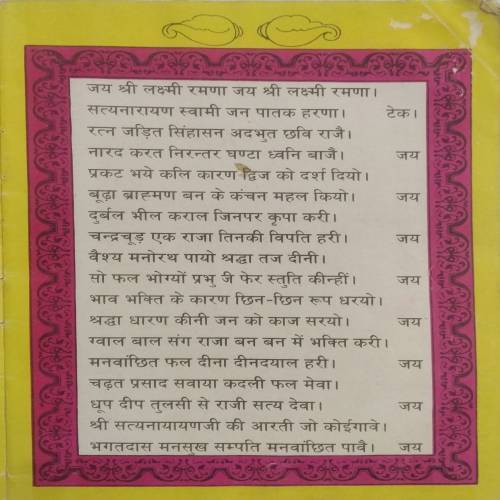 जय श्री लक्ष्मी रमणा जय श्री लक्ष्मी रमणा।
सत्यनारायण स्वामी जन पातक हरणा। टेक।
रत्न जड़ित सिंहासन अदभुत छवि राजै।
नारद करत निरन्तर घण्टा ध्वनि बाजै। जय
प्रकट भये कलि कारण द्विज को दर्श दियो।
बूढ़ा ब्राह्मण बन के कंचन महल कियो। जय
दुर्बल भील कराल जिनपर कृपा करी।
चन्द्रचूड़ एक राजा तिनकी विपति हरी। जय
वैश्य मनोरथ पायो श्रद्धा तज दीनी।
सो फल भोग्यों प्रभु जी फेर स्तुति कीन्हीं। जय
भाव भक्ति के कारण छिन-छिन रूप धरयो।
श्रद्धा धारण कीनी जन को काज सरयो। जय
ग्वाल बाल संग राजा बन बन में भक्ति करी।
मनवांछित फल दीना दीनदयाल हरी। जय
चढ़त प्रसाद सवाया कदली फल मेवा।
धूप दीप तुलसी से राजी सत्य देवा। जय
श्री सत्यनायायणजी की आरती जो कोईगावे।
भगतदास मनसुख सम्पति मनवांछित पावै। जय